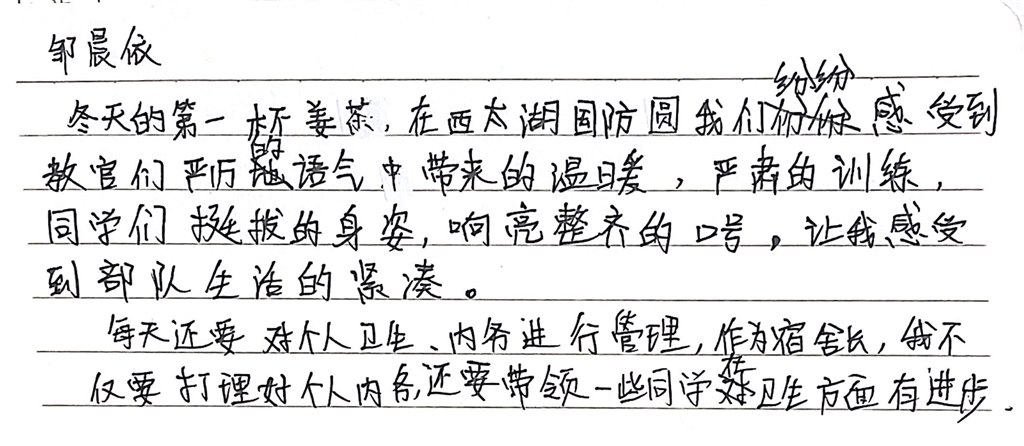 邹晨依
冬天的第一杯姜茶，在西太湖国防圆我们纷纷感受到
教官们严厉的语气中带来的温暖，严肃的训练，
同学们挺拔的身姿，响亮整齐的口号。让我感受
到部队生活的紧凑。
每天还要对个人卫生、内务进行管理，作为宿舍长，我不
仅要打理好个人内务,还要带领一些同学在卫生方面有进步.